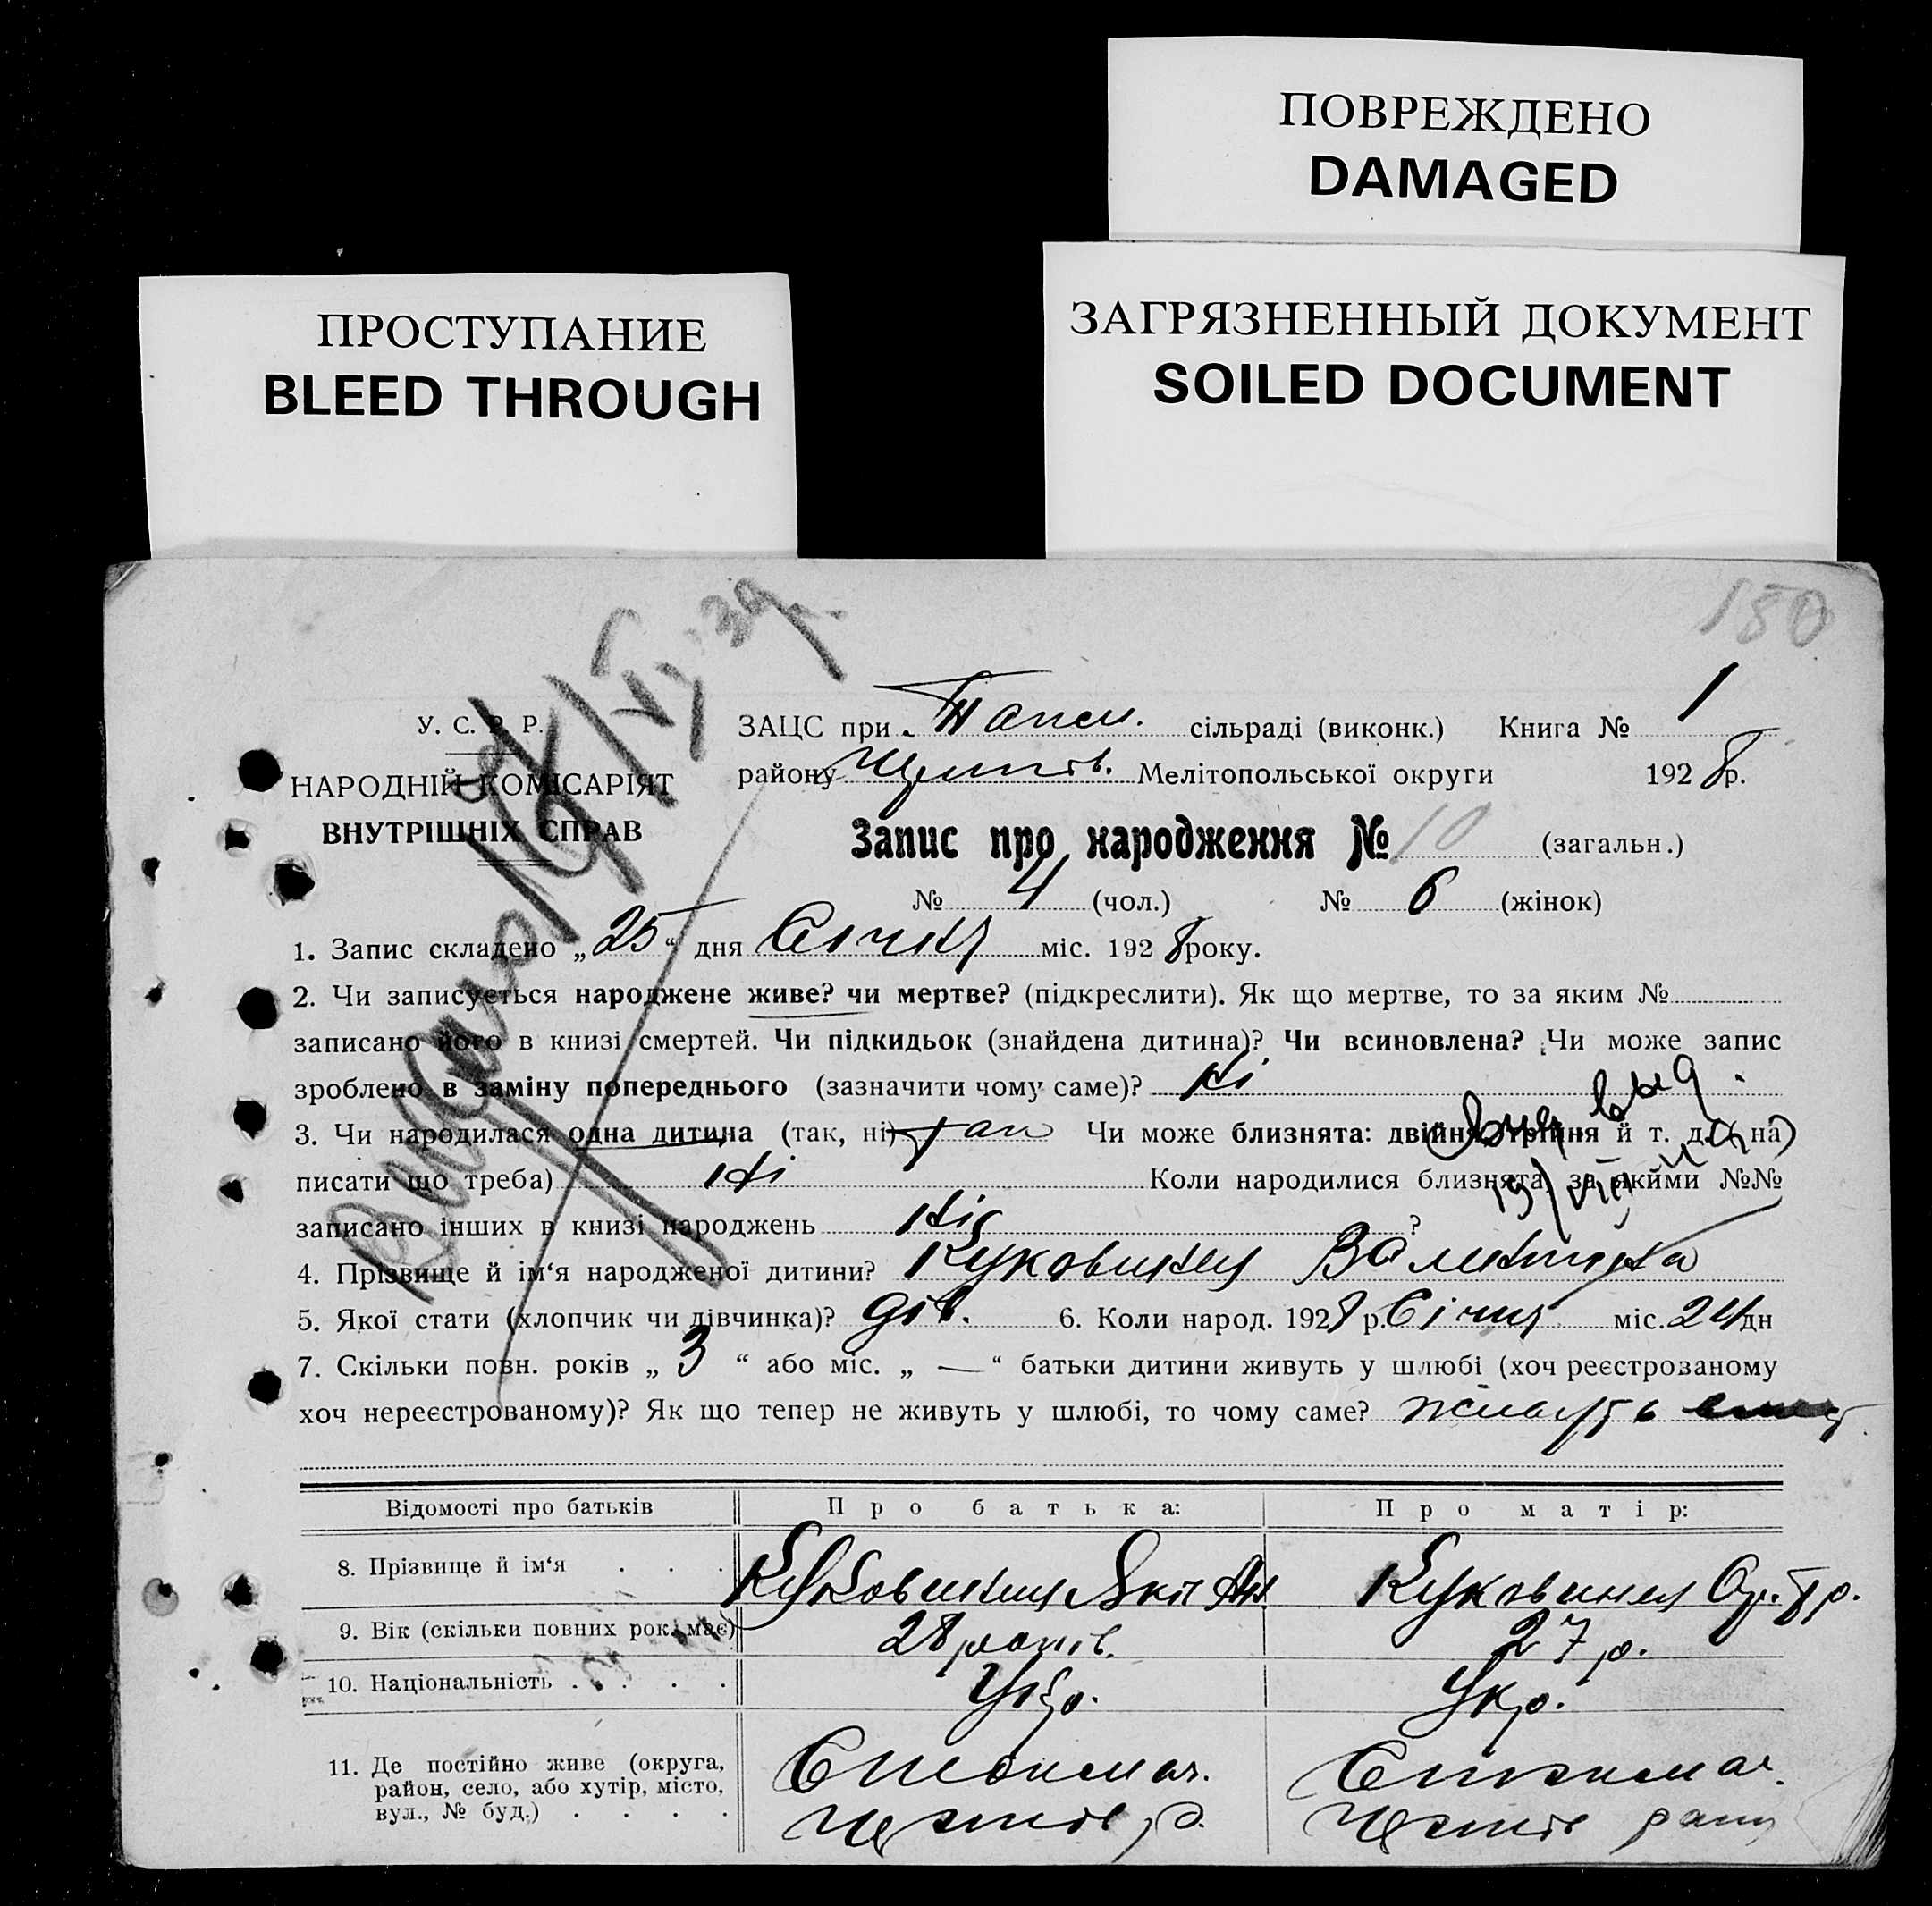 ПОВРЕЖДЕНО
DAMAGED
ПРОСТУПАНИЕ
BLEED THROUGH
ЗАГРЯЗНЕННЫЙ ДОКУМЕНТ
SOILED DOCUMENT
180
У. С. Р. Р.
НАРОДНІЙ КОМІСАРІЯТ
ВНУТРІШНІХ СПРАВ
ЗАЦС при сільраді (виконк.) Книга № 1
району Мелітопольської округи 1928 р.
Запис про народження № 10 (загальн.)
№ 4 (чол.) № 6 (жінок)
1. Запис складено „25“ дня Січня міс. 1928 року.
2. Чи записується народжене живе? чи мертве? (підкреслити). Як що мертве, то за яким №
записано його в книзі смертей. Чи підкидьок (знайдена дитина)? Чи всиновлена? Чи може запис
зроблено в заміну попереднього (зазначити чому саме)? Ні
3. Чи народилася одна дитина (так, ні) так Чи може близнята: двійня, трійня й т. д. (на
писати що треба) Ні Коли народилися близнята, за якими №№
записано інших в книзі народжень Ні ?
4. Прізвище й ім'я народженої дитини? Куковиния Валентина
5. Якої стати (хлопчик чи дівчинка)? дів. 6. Коли народ. 1928 р. Січня міс. 24 дн
7. Скільки повн. років „3“ або міс. „—“ батьки дитини живуть у шлюбі (хоч реєстрованому
хоч нереєстрованому)? Як що тепер не живуть у шлюбі, то чому саме? живуть
Відомості про батьків Про батька: Про матір:
8. Прізвище й ім'я . . . Куковиния Куковиния
9. Вік (скільки повних рок. має) 28 років. 27 р.
10. Національність . . . . . Укр. Укр.
11. Де постійно живе (округа,
район, село, або хутір, місто,
вул., № буд.) . . . .